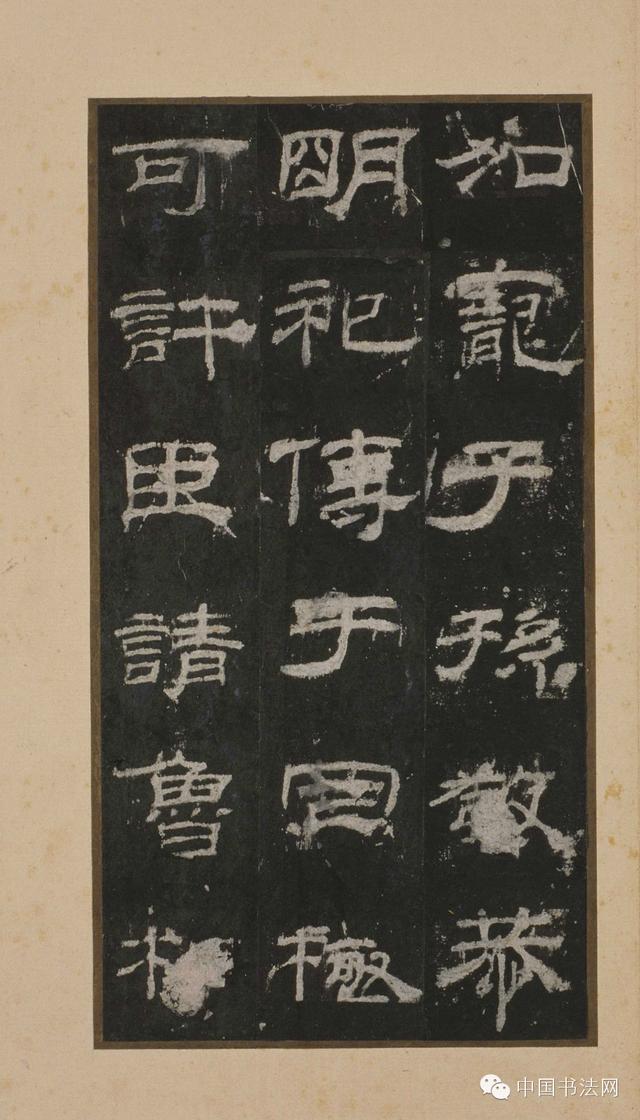 加寵子孫敬恭
明祀傳于罔極
可許臣請魯相
中国书法网